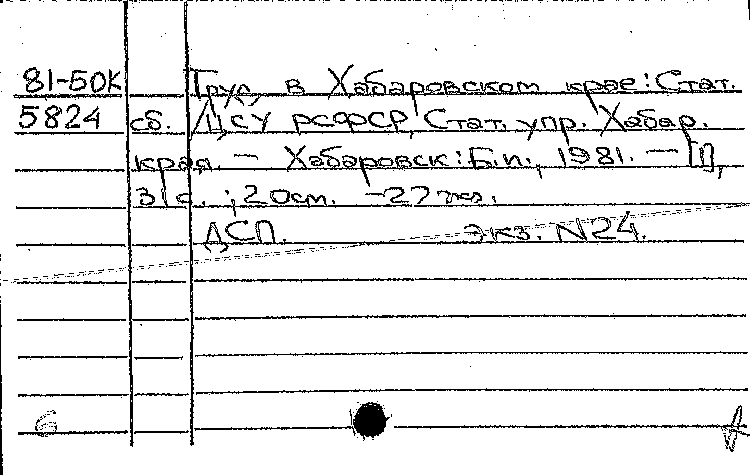 81-50К Труд в Хабаровском крае: Стат.
5824 сб. /ЦСУ РСФСР, Стат. упр. Хабар.
края. — Хабаровск: Б.и., 1981. — П,
31с.; 20см. —27экз.
ДСП. Экз. N24.
6